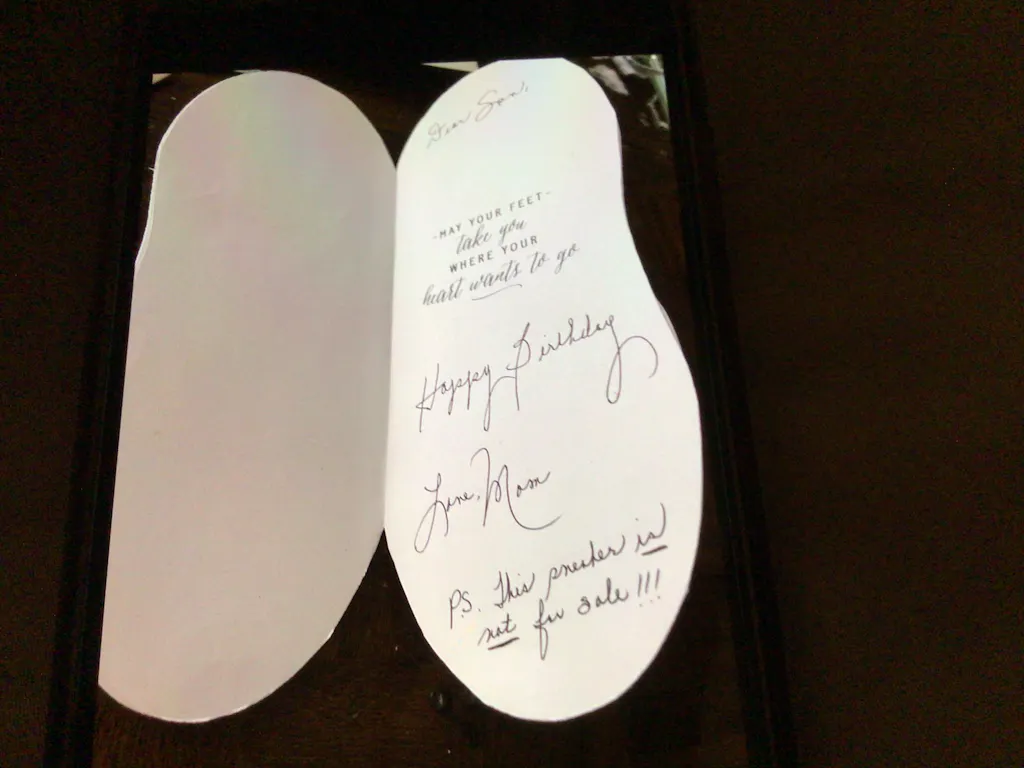 Dear Son,
-MAY YOUR FEET-
take you
WHERE YOUR
heart wants to go
Happy Birthday
Love, Mom
P.S. This sneaker is
not for sale!!!